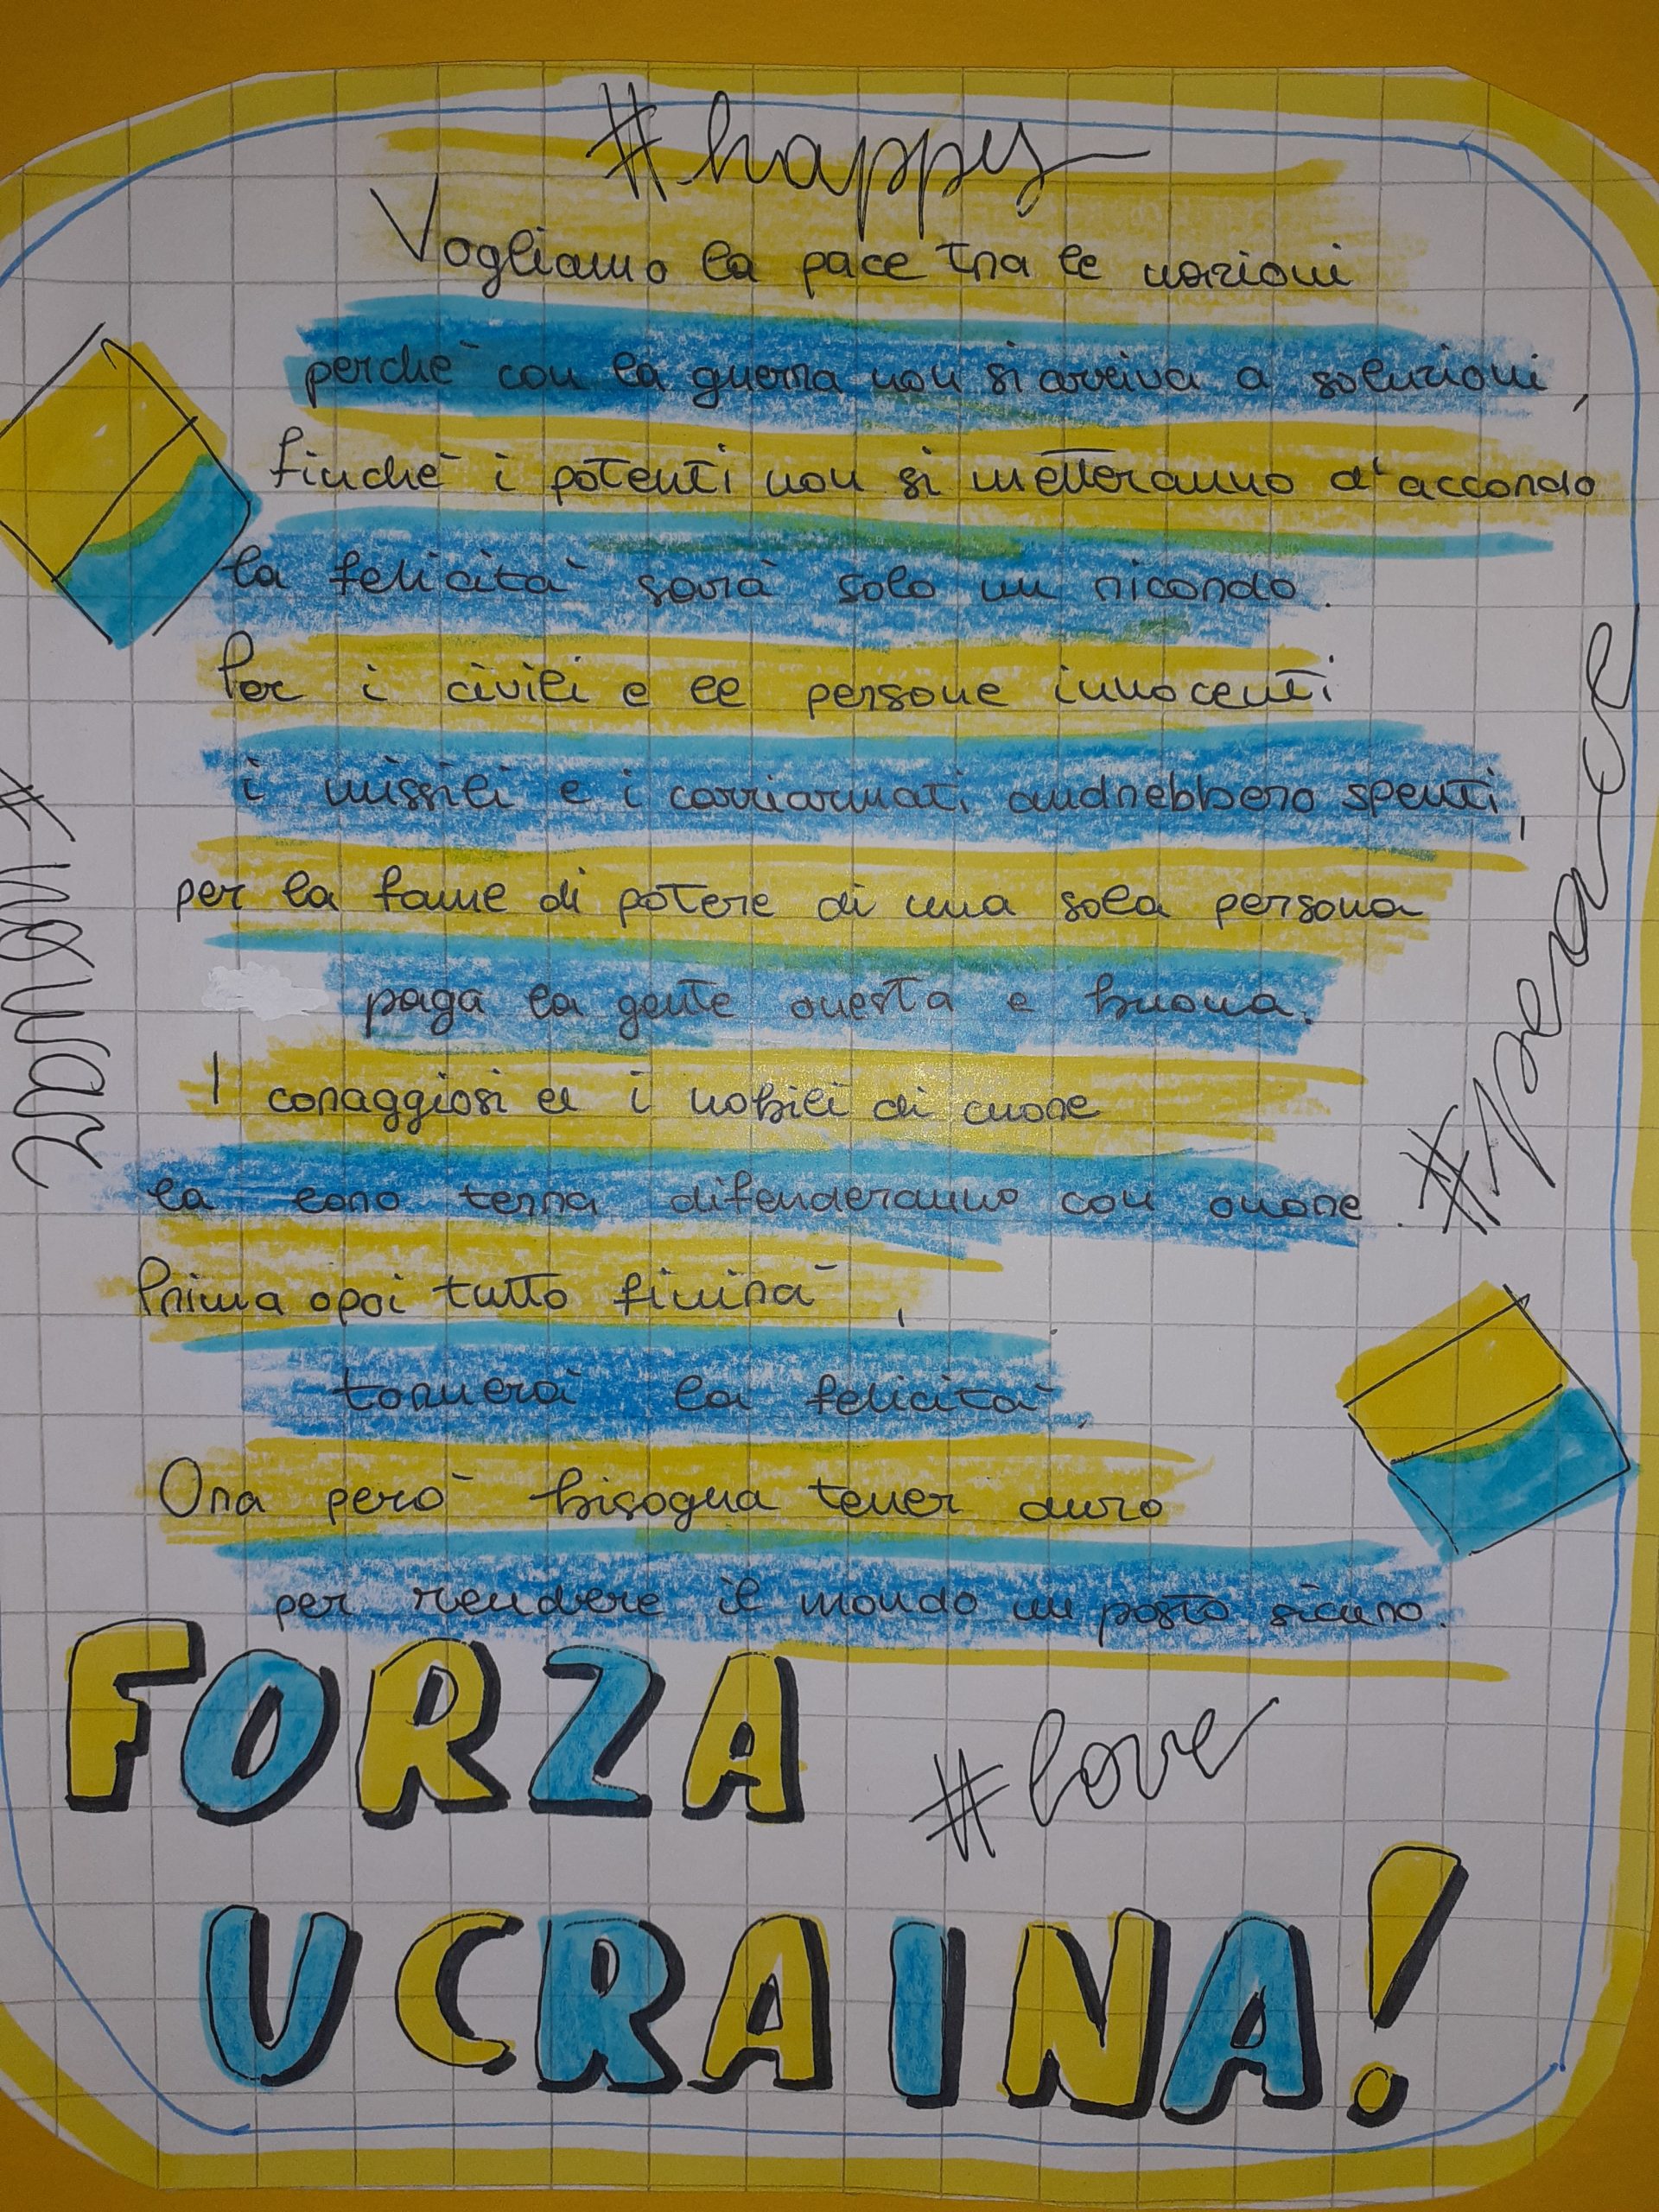 #happy
Vogliamo la pace tra le nazioni
perchè con la guerra non si arriva a soluzioni,
finchè i potenti non si metteranno d'accordo
la felicità sarà solo un ricordo.
Per i civili e le persone innocenti
i missili e i carriarmati andrebbero spenti,
per la fame di potere di una sola persona
paga la gente onesta e buona.
I coraggiosi ed i nobili di cuore
la loro terra difenderanno con onore.
Prima opoi tutto finirà,
tornerà la felicità.
Ora però bisogna tener duro
per rendere il mondo un posto sicuro.
#nowar
#peace
FORZA
#love
UCRAINA!